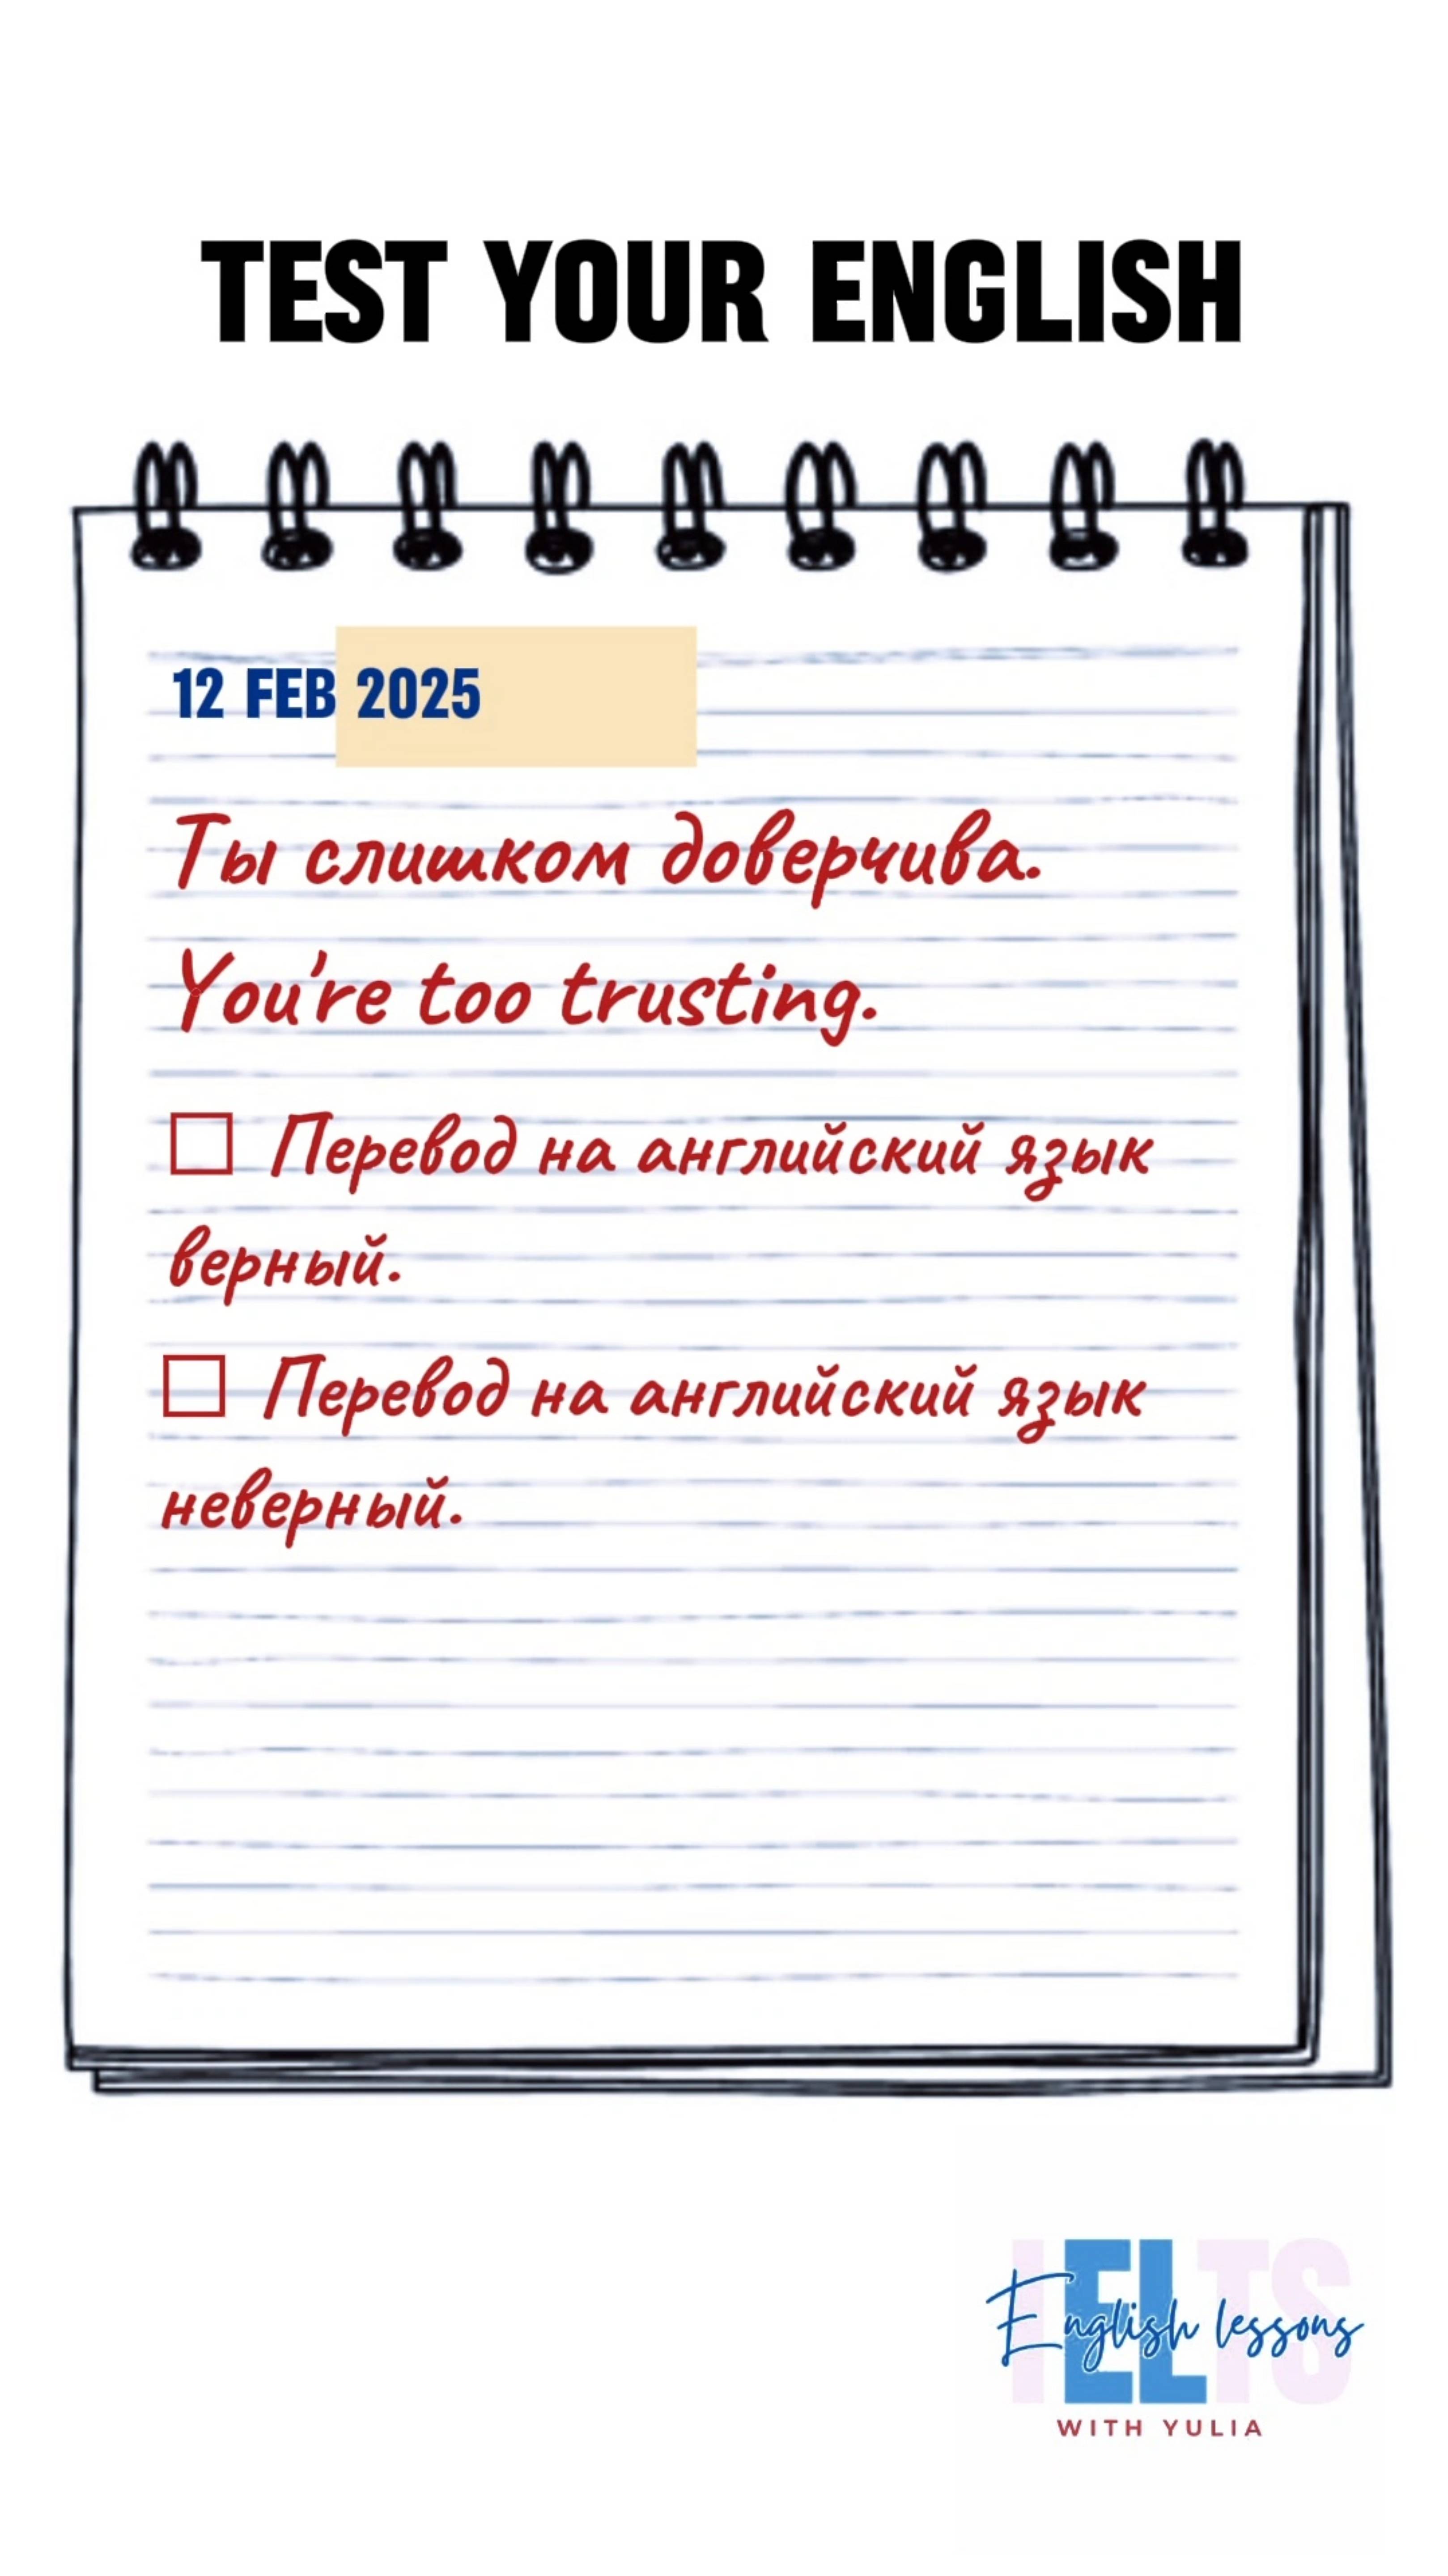 TEST YOUR ENGLISH
12 FEB 2025
Ты слишком доверчива.
You're too trusting.
☐ Перевод на английский язык
верный.
☐ Перевод на английский язык
неверный.
IELTS
English lessons
WITH YULIA